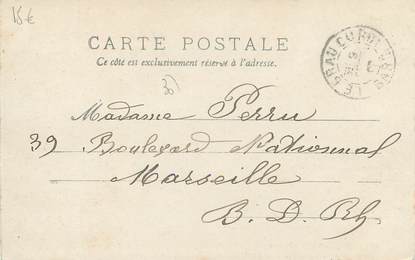 15€
CARTE POSTALE
Ce côté est exclusivement réservé à l'adresse.
LE GRAU DU ROI
GARD
Madame Perru
39 Boulevard National
Marseille
B. D. Rh